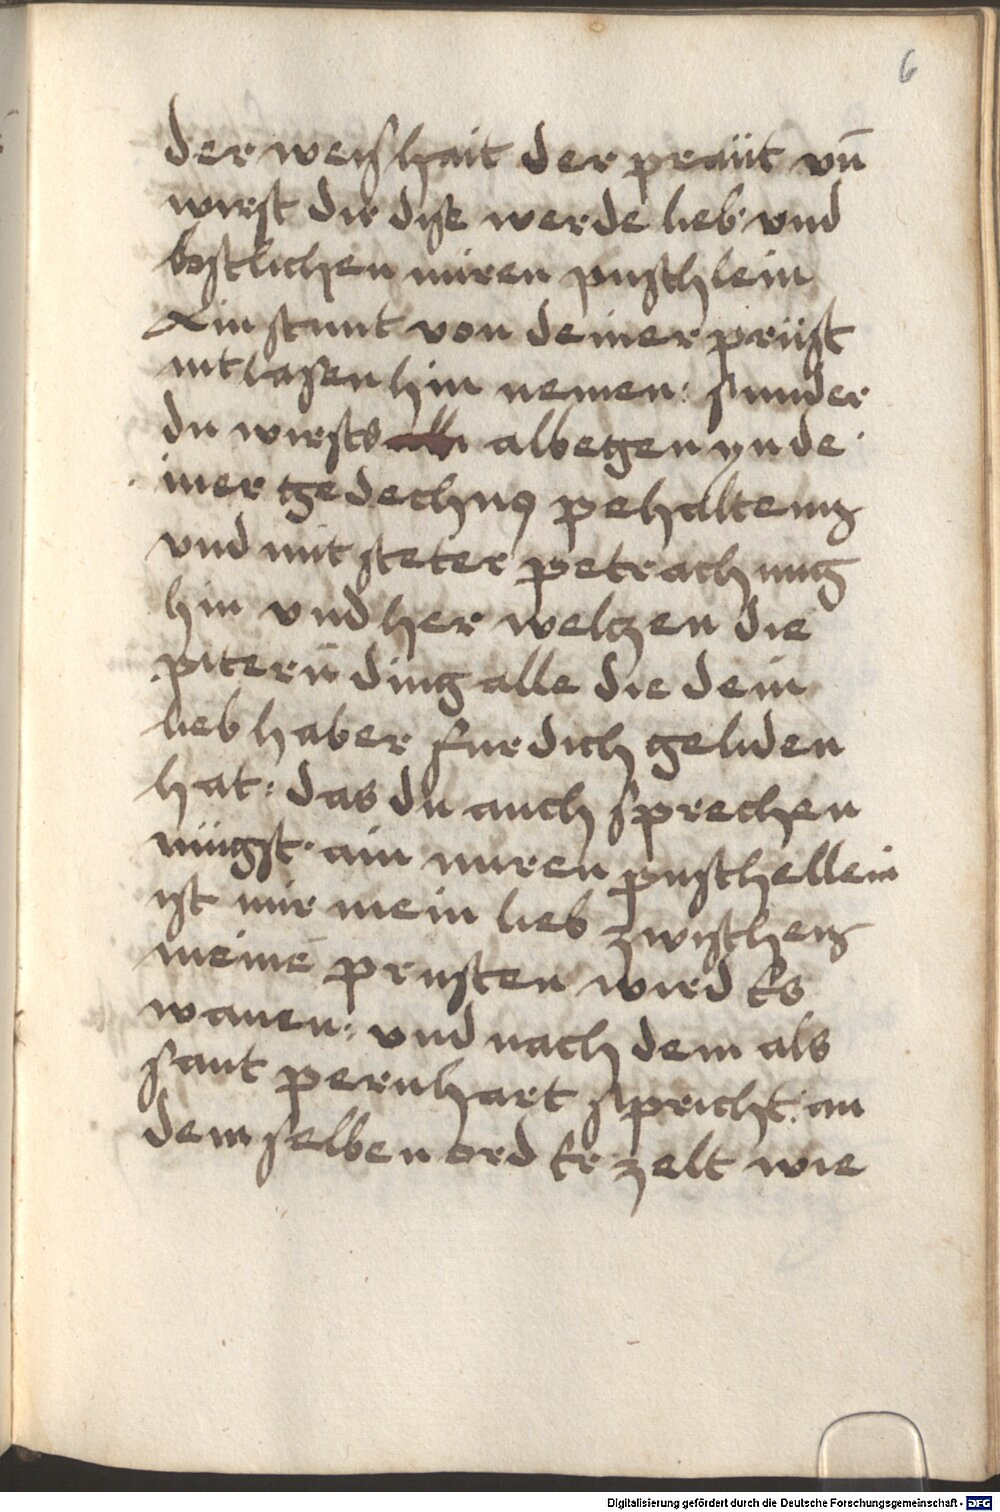 6
der weishait der praüt vn̄
wirst dir dise werde lieb vnd
kostlichen miren puschlein
Ain stunt von deiner prüst
nit lasen hin nemen: sunder
du wirsts albegen yn de
iner gedechnus pehalten
vnd mit steter petrachung
hin vnd her weltzen die
pitern ding alle die dein
lieb haber fur dich geliden
hat: das du auch sprechen
mügst· ain miren puschellein
ist mir mein lieb zwischen
meine prusten wird Es
wanen: vnd nach dem als
sant pernhart spricht: an
dem selben ord Er zelt wie
Digitalisierung gefördert durch die Deutsche Forschungsgemeinschaft - DFG